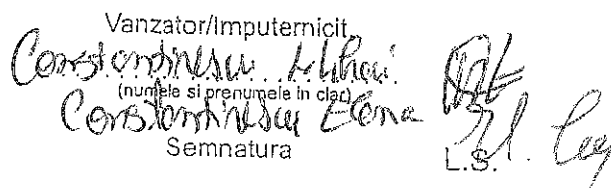 Vanzator/Imputernicit,
Constantinescu Mihai
(numele si prenumele in clar)
Constantinescu Elena
Semnatura
L.S.